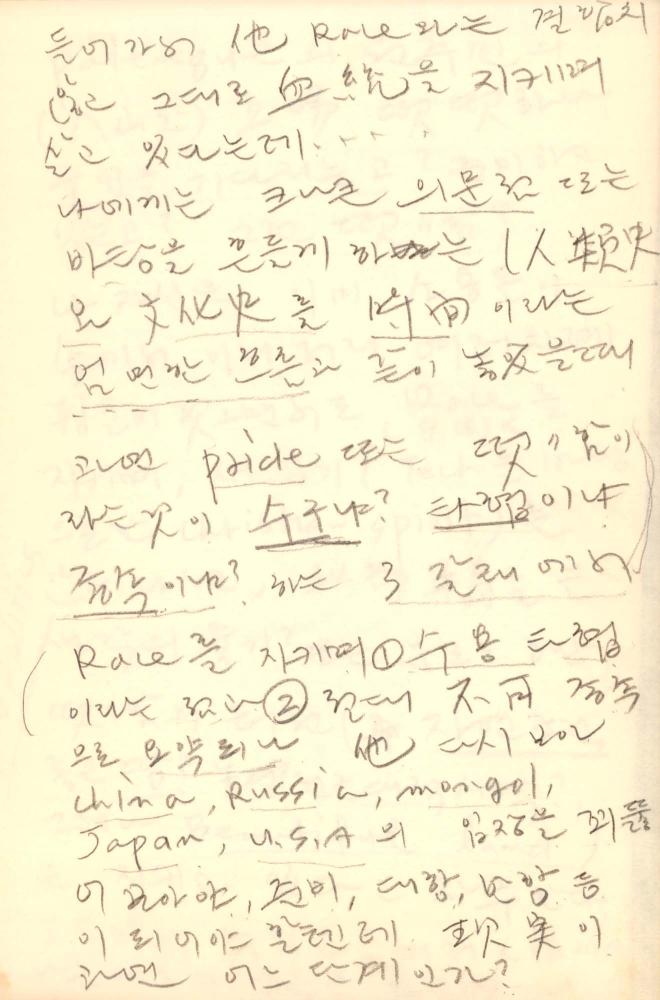 들어가서 他 Race와는 결합치
않고 그대로 血統을 지키며
살고 있다는데....
나에게는 크나큰 의문점 또는
바탕을 흔들게 하는 人類史
와 文化史를 時間이라는
엄연한 흐름과 같이 놓았을때
과연 pride 또는 떳떳함이
라는것이 수구냐? 타협이냐
종속이냐? 하는 3 갈래에서
Race를 지키며 ① 수용 타협
이라는 점과 ② 절대 不可 종속
으로 요약되나 他 다시 보아
China, Russia, mongol,
Japan, U.S.A의 입장을 꿰뚫
어 보아야, 준비, 대항, 반항 등
이 되어야 할텐데 現実이
과연 어느 단계인가?